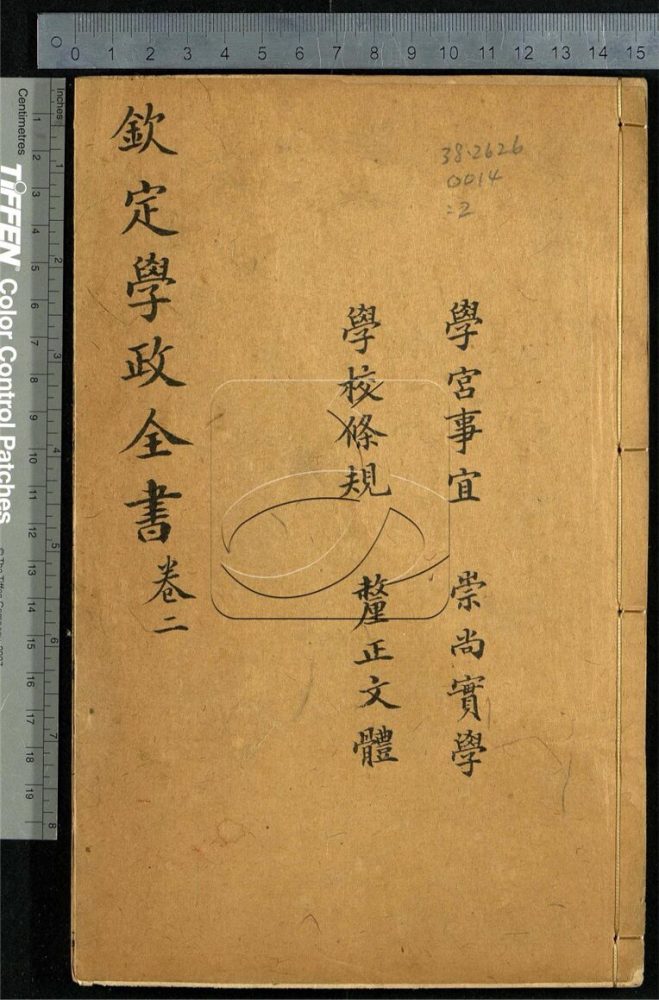 0 1 2 3 4 5 6 7 8 9 10 11 12 13 14 15
38.2626
0014
:2
學宮事宜 崇尚實學
學校條規 釐正文體
欽定學政全書卷二
Inches
1 2 3 4 5 6 7 8
Centimetres
1 2 3 4 5 6 7 8 9 10 11 12 13 14 15 16 17 18 19
TIFFEN® Color Control Patches